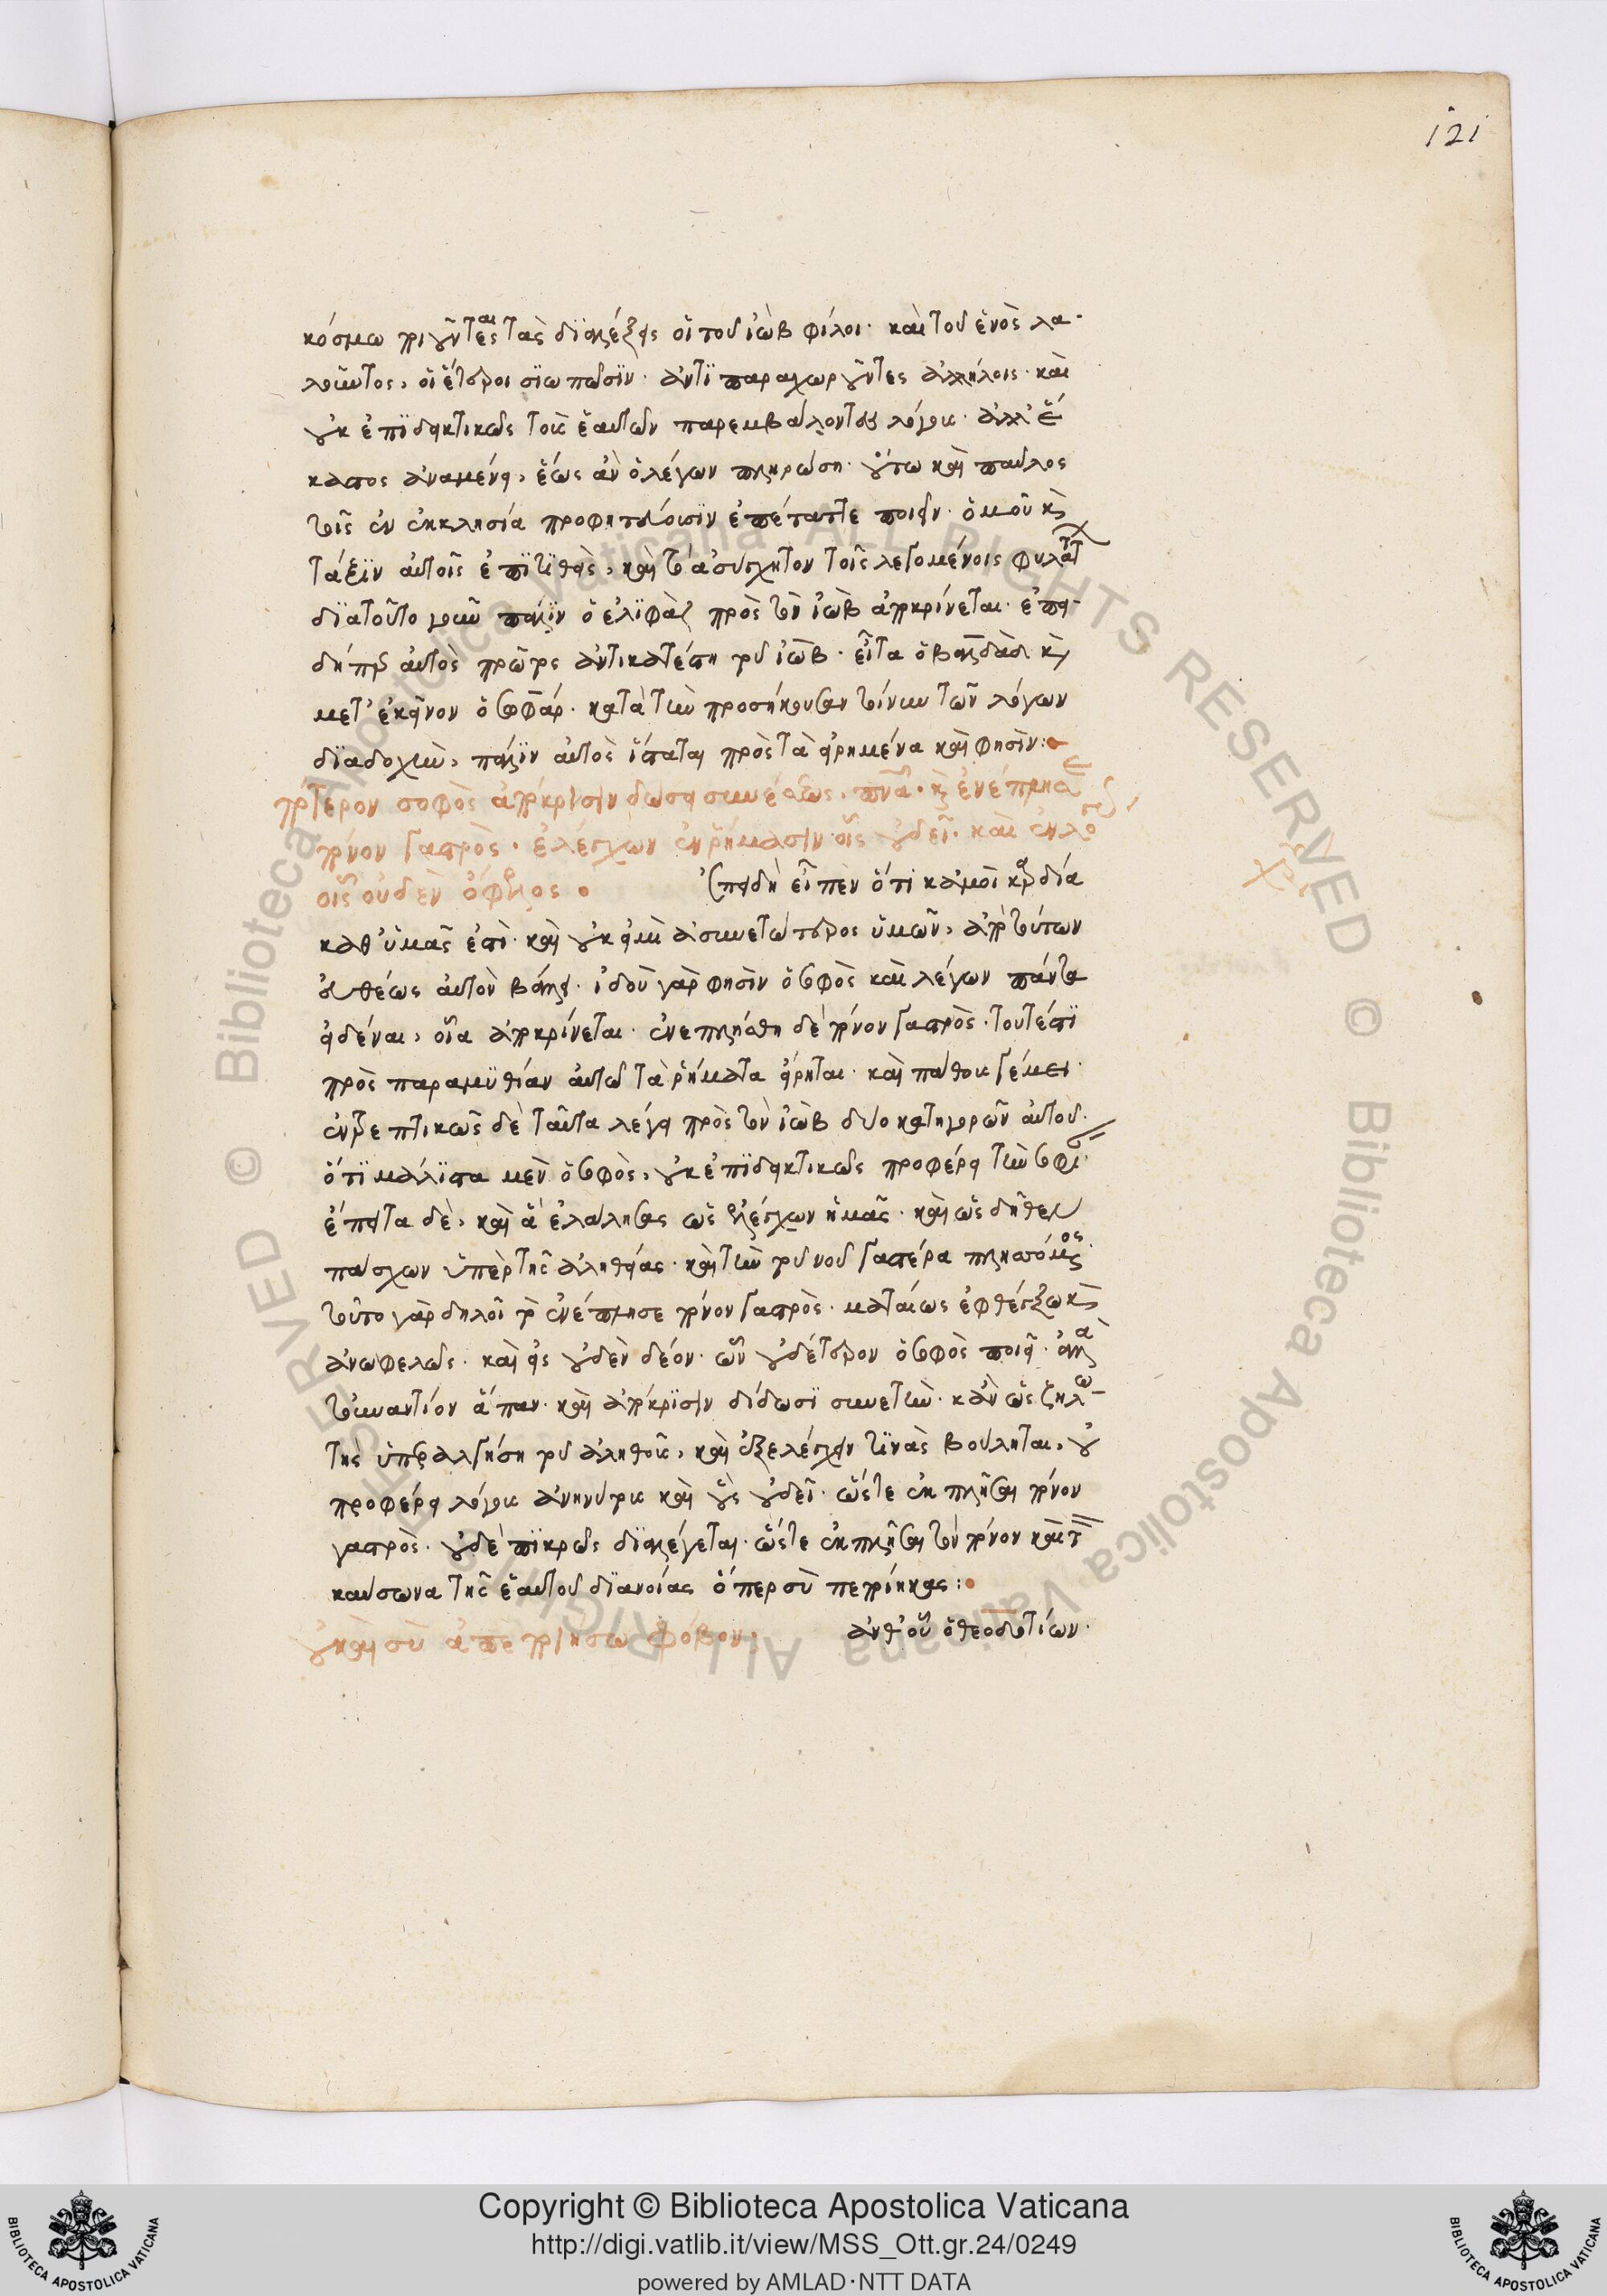 121
κόσμω ποιοῦνται τὰς διαλέξεις οἱ τοῦ ἰὼβ φίλοι· καὶ τοῦ ἑνὸς λα-
λοῦντος, οἱ ἕτεροι σιωπῶσιν· ἀντιπαραχωροῦντες ἀλλήλοις· καὶ
οὐκ ἐπιδεικτικῶς τοὺς ἑαυτῶν παρεμβάλοντες λόγους· ἀλλ' ἕ
καστος ἀναμένει, ἕως ἂν ὁ λέγων πληρώση· οὕτω καὶ παῦλος
τοῖς ἐν ἐκκλησία προφητεύουσιν ἐπέταττε ποιεῖν· ὁμοῦ κ
τάξιν αὐτοῖς ἐπιτιθεὶς, καὶ τὸ ἀσύγχυτον τοῖς λεγομένοις φυλάττ
διατοῦτο γοῦν πάλιν ὁ ἐλιφὰζ πρὸς τὸν ἰὼβ ἀποκρίνεται· ἐπει-
δήπερ αὐτὸς πρῶτος ἀντικατέστη τοῦ ἰὼβ· εἶτα ὁ βαλδὰδ κ
μετ' ἐκεῖνον ὁ σωφάρ· κατὰ τὴν προσήκουσαν τοίνυν τῶν λόγων
διαδοχὴν, πάλιν αὐτὸς ἵσταται πρὸς τὰ εἰρημένα καὶ φησίν:
πότερον σοφὸς ἀπόκρισιν δώσει συνέσεως, πνα· κ ἐνέπλησε
πόνον γαστρὸς· ἐλέγχων ἐν ῥήμασιν οἷς οὐ δεῖ· καὶ ἐν λό
οἷς οὐδὲν ὄφελος· Ἐπειδὴ εἶπεν ὅτι κἀμοὶ καρδία
καθ' ὑμᾶς ἐστὶ· καὶ οὐκ εἰμὶ ἀσυνετώτερος ὑμῶν, ἀπὸ τούτων
εὐθέως αὐτὸν βάλλει· ἰδοὺ γὰρ φησὶν ὁ σοφὸς καὶ λέγων πάντα
εἰδέναι, οἷα ἀποκρίνεται· ἐνεπλήσθη δὲ πόνον γαστρὸς· τουτέστι
πρὸς παραμυθίαν αὐτῶ τὰ ῥήματα εἴρηται· καὶ πάθους γέμει·
ἐντρεπτικῶς δὲ ταῦτα λέγει πρὸς τὸν ἰὼβ δύο κατηγορῶν αὐτοῦ·
ὅτι μάλιστα μὲν ὁ σοφὸς, οὐκ ἐπιδεικτικῶς προφέρει τὴν σοφι
ἔπειτα δὲ, καὶ ἃ ἐλάλησας ὡς ἐλέγχων ἡμᾶς· καὶ ὡς δῆθεν
πάσχων ὑπὲρ τῆς ἀληθείας· καὶ τὴν τοῦ νοῦ γαστέρα πλησάμενος
τοῦτο γὰρ δηλοῖ τὸ ἐνέπλησε πόνον γαστρὸς· ματαίως ἐφθέγξω κ
ἀνωφελῶς· καὶ εἰς οὐδὲν δέον· ὧν οὐδέτερον ὁ σοφὸς ποιεῖ· ἀλλὰ
τοὐναντίον ἅπαν· καὶ ἀπόκρισιν δίδωσι συνετὴν· κἂν ὡς ζηλω-
τὴς ὑπεραλγήση τοῦ ἀληθοῦς, καὶ ἐξελέγχειν τινὰς βούληται, οὐ
προφέρει λόγους ἀνηνύτους καὶ οὓς οὐ δεῖ· ὥστε ἐκπλῆσαι πόνον
γαστρὸς· οὐδὲ πικρῶς διαλέγεται· ὥστε ἐκπλῆσαι τὸν πόνον καὶ τ
καύσωνα τῆς ἑαυτοῦ διανοίας ὅπερ σὺ πεποίηκας:
οὐ καὶ σὺ ἀπεποιήσω φόβον· ἀνθ' οὗ ὁ θεοδοτίων·
Copyright © Biblioteca Apostolica Vaticana
http://digi.vatlib.it/view/MSS_Ott.gr.24/0249
powered by AMLAD·NTT DATA